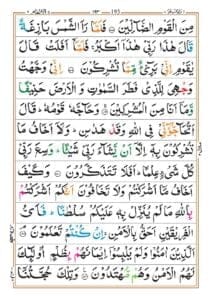 مِنَ الْقَوْمِ الضَّآلِّيْنَ ۝ فَلَمَّا رَاَ الشَّمْسَ بَازِغَةً
قَالَ هٰذَا رَبِّيْ هٰذَآ اَكْبَرُ ۚ فَلَمَّآ اَفَلَتْ قَالَ
يٰقَوْمِ اِنِّيْ بَرِيْٓءٌ مِّمَّا تُشْرِكُوْنَ ۝ اِنِّيْ وَجَّهْتُ
وَجْهِيَ لِلَّذِيْ فَطَرَ السَّمٰوٰتِ وَالْاَرْضَ حَنِيْفًا
وَّمَآ اَنَا مِنَ الْمُشْرِكِيْنَ ۝ وَحَآجَّهٗ قَوْمُهٗ ؕ قَالَ
اَتُحَآجُّوْٓنِّيْ فِي اللّٰهِ وَقَدْ هَدٰىنِ ؕ وَلَآ اَخَافُ مَا
تُشْرِكُوْنَ بِهٖٓ اِلَّآ اَنْ يَّشَآءَ رَبِّيْ شَيْـًٔا ؕ وَسِعَ رَبِّيْ
كُلَّ شَيْءٍ عِلْمًا ؕ اَفَلَا تَتَذَكَّرُوْنَ ۝ وَكَيْفَ
اَخَافُ مَآ اَشْرَكْتُمْ وَلَا تَخَافُوْنَ اَنَّكُمْ اَشْرَكْتُمْ
بِاللّٰهِ مَا لَمْ يُنَزِّلْ بِهٖ عَلَيْكُمْ سُلْطٰنًا ؕ فَاَيُّ
الْفَرِيْقَيْنِ اَحَقُّ بِالْاَمْنِ ۚ اِنْ كُنْتُمْ تَعْلَمُوْنَ ۝
اَلَّذِيْنَ اٰمَنُوْا وَلَمْ يَلْبِسُوْٓا اِيْمَانَهُمْ بِظُلْمٍ اُولٰٓئِكَ
لَهُمُ الْاَمْنُ وَهُمْ مُّهْتَدُوْنَ ۝ وَتِلْكَ حُجَّتُنَآ